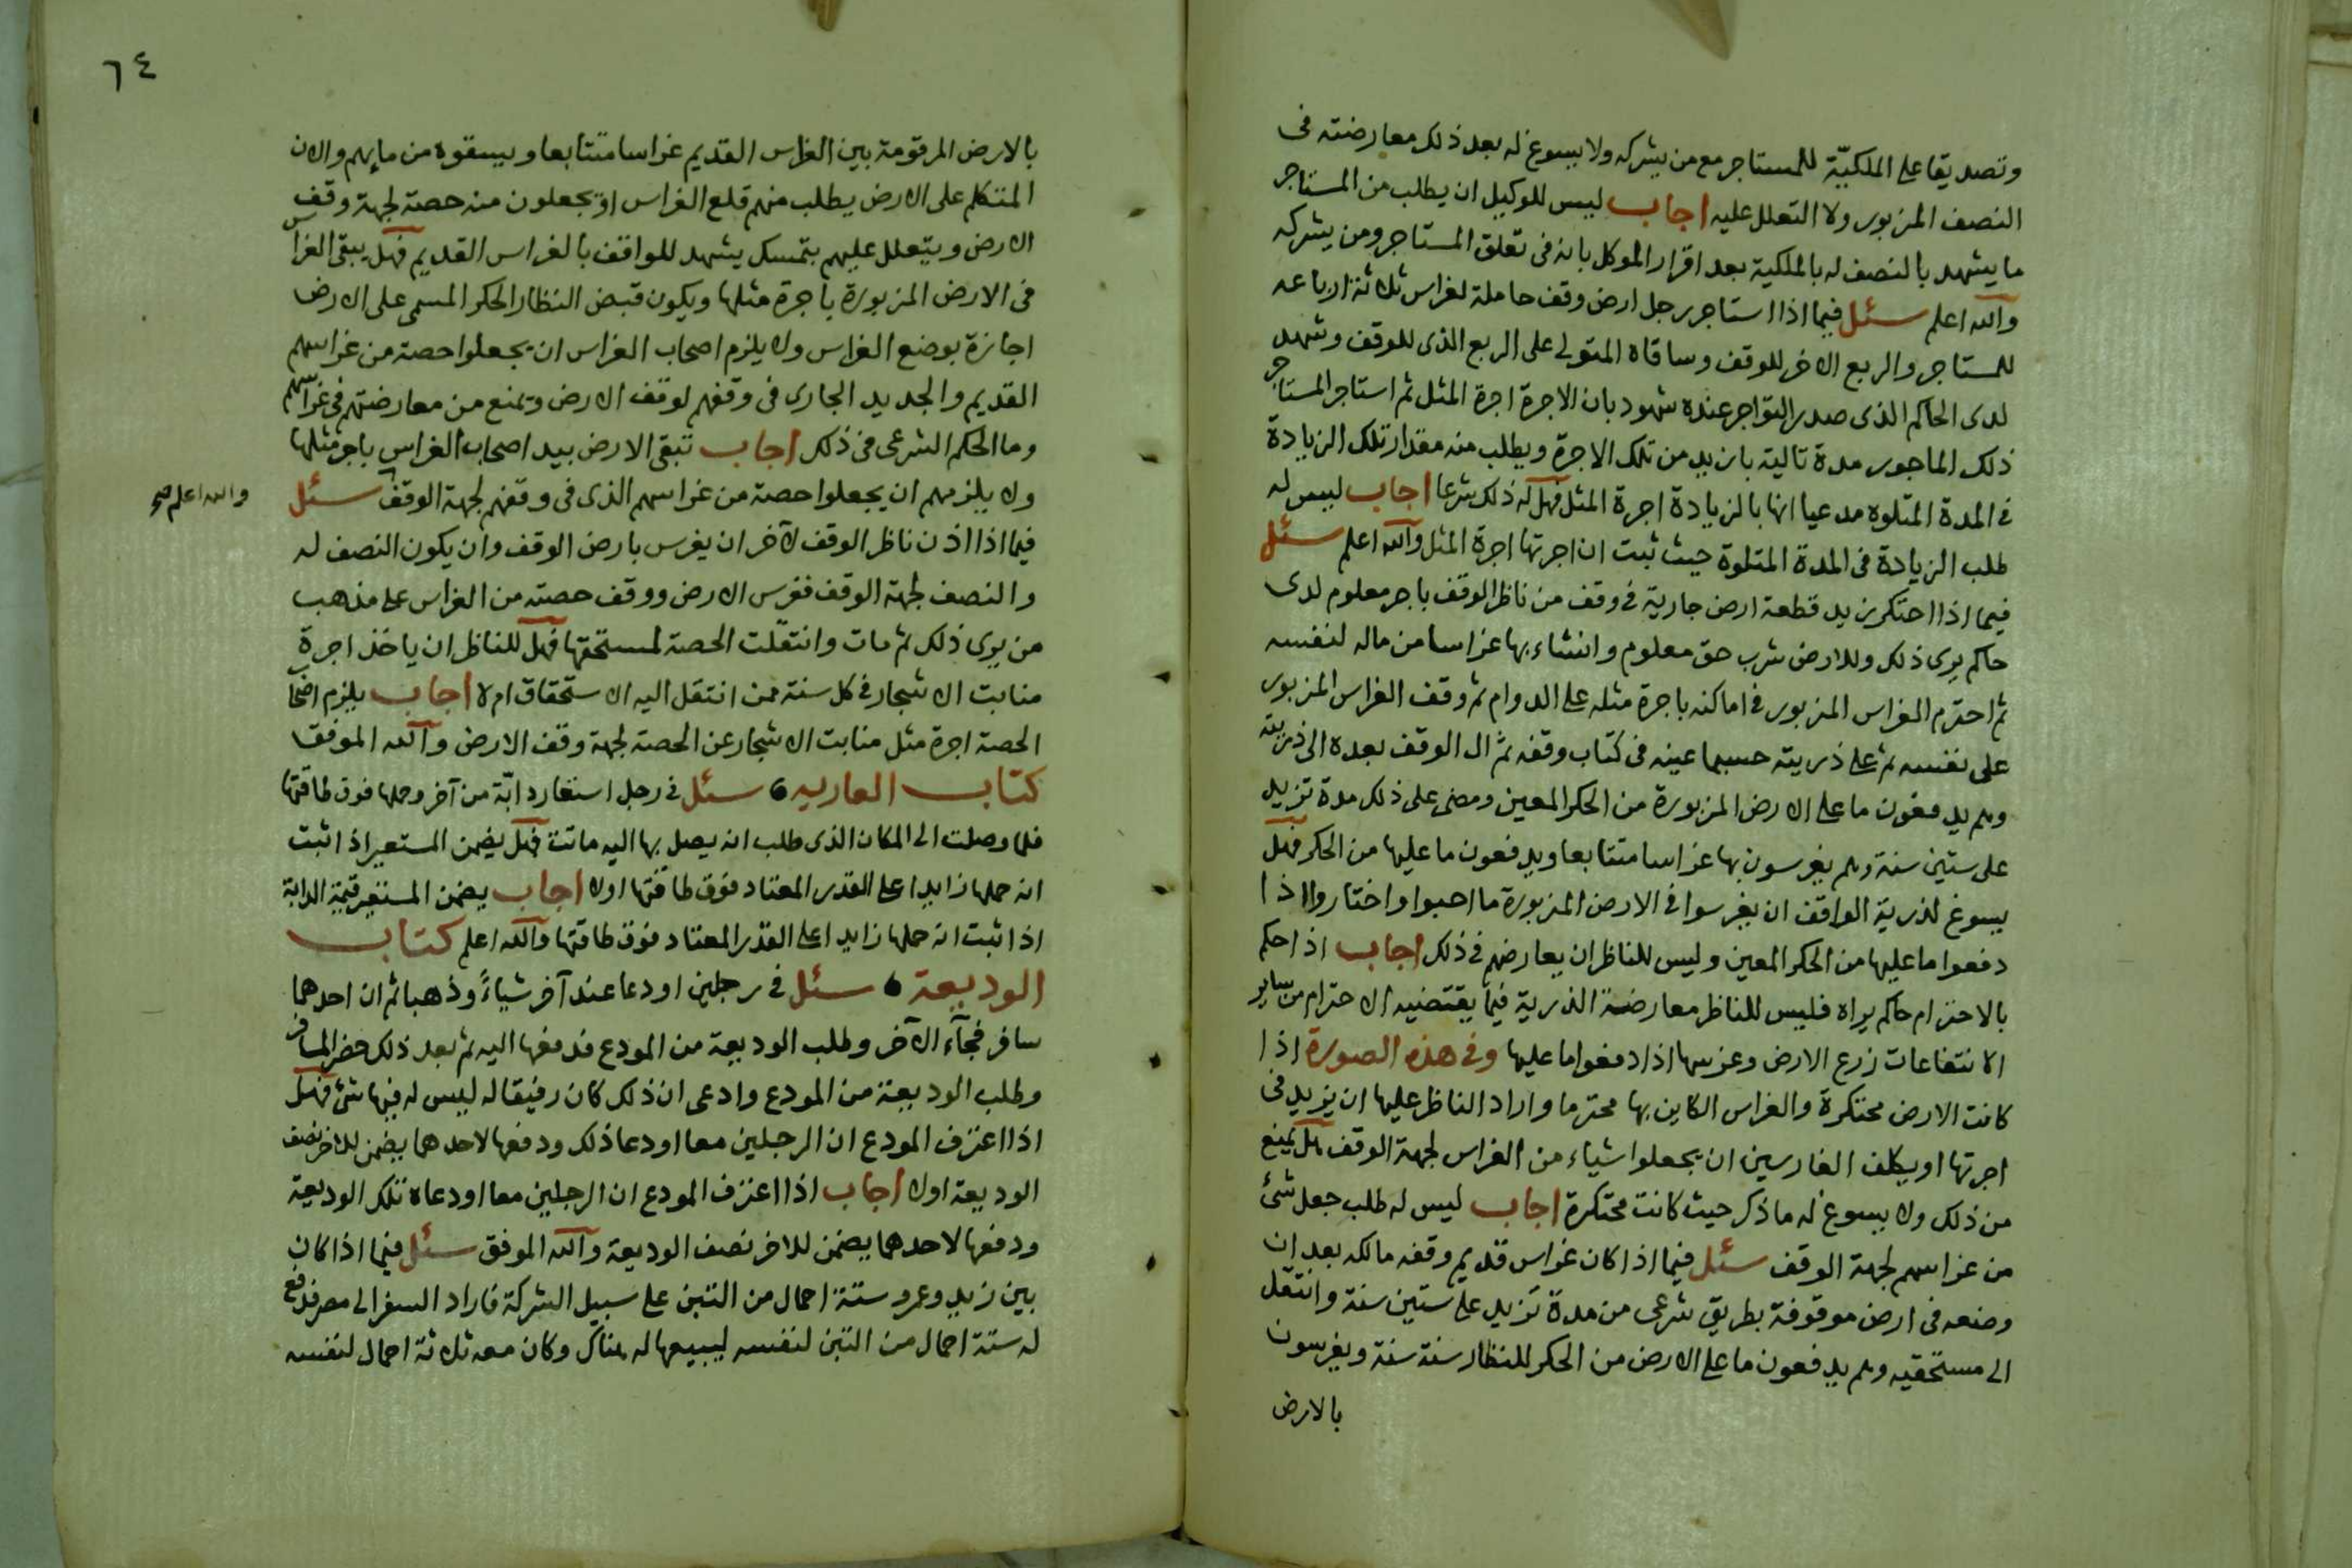 وتصديقا على الملكيّة للمستاجر مع من يشركه ولا يسوغ له بعد ذلك معارضته فى
النصف المزبور ولا التعلل عليه اجاب ليس للوكيل ان يطلب من المستاجر
ما يشهد بالنصف له بالملكية بعد اقرار الموكل بانه فى تعلق المستاجر ومن يشركه
والله اعلم سئل فيما اذا استاجر رجل ارض وقف حاملة لغراس ثلاثة ارباعه
للمستاجر والربع الاخر للوقف وساقاه المتولى على الربع الذى للوقف وشهد
لدى الحاكم الذى صدر التواجر عنده شهود بان الاجرة اجرة المثل ثم استاجر المستاجر
ذلك الماجور مدة تالية بازيد من تلك الاجرة ويطلب منه مقدار تلك الزيادة
فى المدة المتلوه مدعيا انها بالزيادة اجرة المثل فهل له ذلك شرعا اجاب ليس له
طلب الزيادة فى المدة المتلوة حيث ثبت ان اجرتها اجرة المثل والله اعلم سئل
فيما اذا احتكر زيد قطعة ارض جارية فى وقف من ناظر الوقف باجر معلوم لدى
حاكم يرى ذلك وللارض شرب حق معلوم وانشاء بها غراسا من ماله لنفسه
ثم احترم الغراس المزبور فى اماكنه باجرة مثله على الدوام ثم وقف الغراس المزبور
على نفسه ثم على ذريته حسبما عينه فى كتاب وقفه ثم ال الوقف بعده الى ذريته
وهم يدفعون ما على الارض المزبورة من الحكر المعين ومضى على ذلك مدة تزيد
على ستين سنة وهم يغرسون بها غراسا متتابعا ويدفعون ما عليها من الحكر فهل
يسوغ لذرية الواقف ان يغرسوا فى الارض المزبورة ما احبوا واختاروا اذا
دفعوا ما عليها من الحكر المعين وليس للناظر ان يعارضهم فى ذلك اجاب اذا حكم
بالاحترام حاكم يراه فليس للناظر معارضة الذرية فيما يقتضيه الاحترام من ساير
الانتفاعات زرع الارض وغرسها اذا دفعوا ما عليها وفى هذه الصورة اذا
كانت الارض محتكرة والغراس الكاين بها محترما واراد الناظر عليها ان يزيد فى
اجرتها او يكلف الغارسين ان يجعلوا شياء من الغراس لجهة الوقف هل يمنع
من ذلك ولا يسوغ له ما ذكر حيث كانت محتكرة اجاب ليس له طلب جعل شئ
من غراسهم لجهة الوقف سئل فيما اذا كان غراس قديم وقفه مالكه بعد ان
وضعه فى ارض موقوفة بطريق شرعى من مدة تزيد على ستين سنة وانتقل
الى مستحقيه وهم يدفعون ما على الارض من الحكر للنظار سنة سنة ويغرسون
بالارض
٦٤
بالارض المرقومة بين الغراس القديم غراسا متتابعا ويسقوه من مايهم والان
المتكلم على الارض يطلب منهم قلع الغراس او يجعلون منه حصة لجهة وقف
الارض ويتعلل عليهم بتمسك يشهد للواقف بالغراس القديم فهل يبقى الغراس
فى الارض المزبورة باجرة مثلها ويكون قبض النظار الحكر المسمى على الارض
اجازة بوضع الغراس ولا يلزم اصحاب الغراس ان يجعلوا حصة من غراسهم
القديم والجديد الجارى فى وقفهم لوقف الارض ويمنع من معارضتهم فى غراسهم
وما الحكم الشرعى فى ذلك اجاب تبقى الارض بيد اصحاب الغراس باجر مثلها
ولا يلزمهم ان يجعلوا حصة من غراسهم الذى فى وقفهم لجهة الوقف سئل
والله اعلم صح
فيما اذا اذن ناظر الوقف لآخر ان يغرس بارض الوقف وان يكون النصف له
والنصف لجهة الوقف فغرس الارض ووقف حصته من الغراس على مذهب
من يرى ذلك ثم مات وانتقلت الحصة لمستحقها فهل للناظر ان ياخذ اجرة
منابت الاشجار فى كل سنة ممن انتقل اليه الاستحقاق ام لا اجاب يلزم اصحاب
الحصة اجرة مثل منابت الاشجار عن الحصة لجهة وقف الارض والله الموفق
كتاب العاريه سئل فى رجل استعار دابّة من آخر وحملها فوق طاقتها
فلما وصلت الى المكان الذى طلب انه يصل بها اليه ماتت فهل يضمن المستعير اذا ثبت
انه حملها زايدا على القدر المعتاد فوق طاقتها اولا اجاب يضمن المستعير قيمة الدابة
اذا ثبت انه حملها زايدا على القدر المعتاد فوق طاقتها والله اعلم كتاب
الوديعة سئل فى رجلين اودعا عند آخر شياءً وذهبا ثم ان احدهما
سافر فجآء الآخر وطلب الوديعة من المودع فدفعها اليه ثم بعد ذلك حضر المسافر
وطلب الوديعة من المودع وادعى ان ذلك كان رفيقا له ليس له فيها شئ فهل
اذا اعترف المودع ان الرجلين معا اودعا ذلك ودفعها لاحدهما يضمن للاخر نصف
الوديعة اولا اجاب اذا اعترف المودع ان الرجلين معا اودعاه تلك الوديعة
ودفعها لاحدهما يضمن للاخر نصف الوديعة والله الموفق سئل فيما اذا كان
بين زيد وعمرو ستة احمال من التبن على سبيل الشركة فاراد السفر الى مصر فدفع
له ستة احمال من التبن لنفسه ليبيعها له هناك وكان معه ثلاثة احمال لنفسه